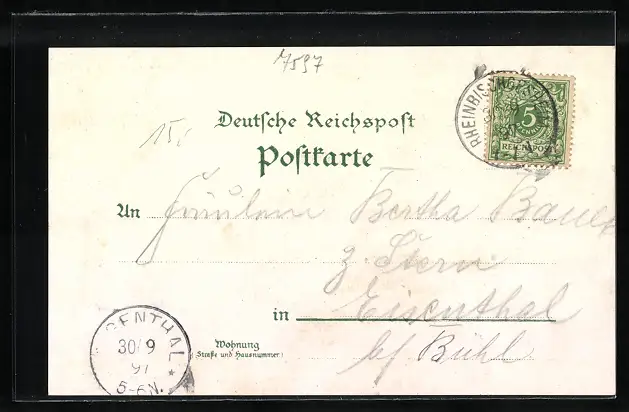 7597
Deutsche Reichspost
15,
Postkarte
5
REICHSPOST
An Fräulein Bertha Bauer
z. Stern
in Eisenthal
Wohnung
(Straße und Hausnummer)
bei Bühl
ENTHAL
30/9
97
5-6N.